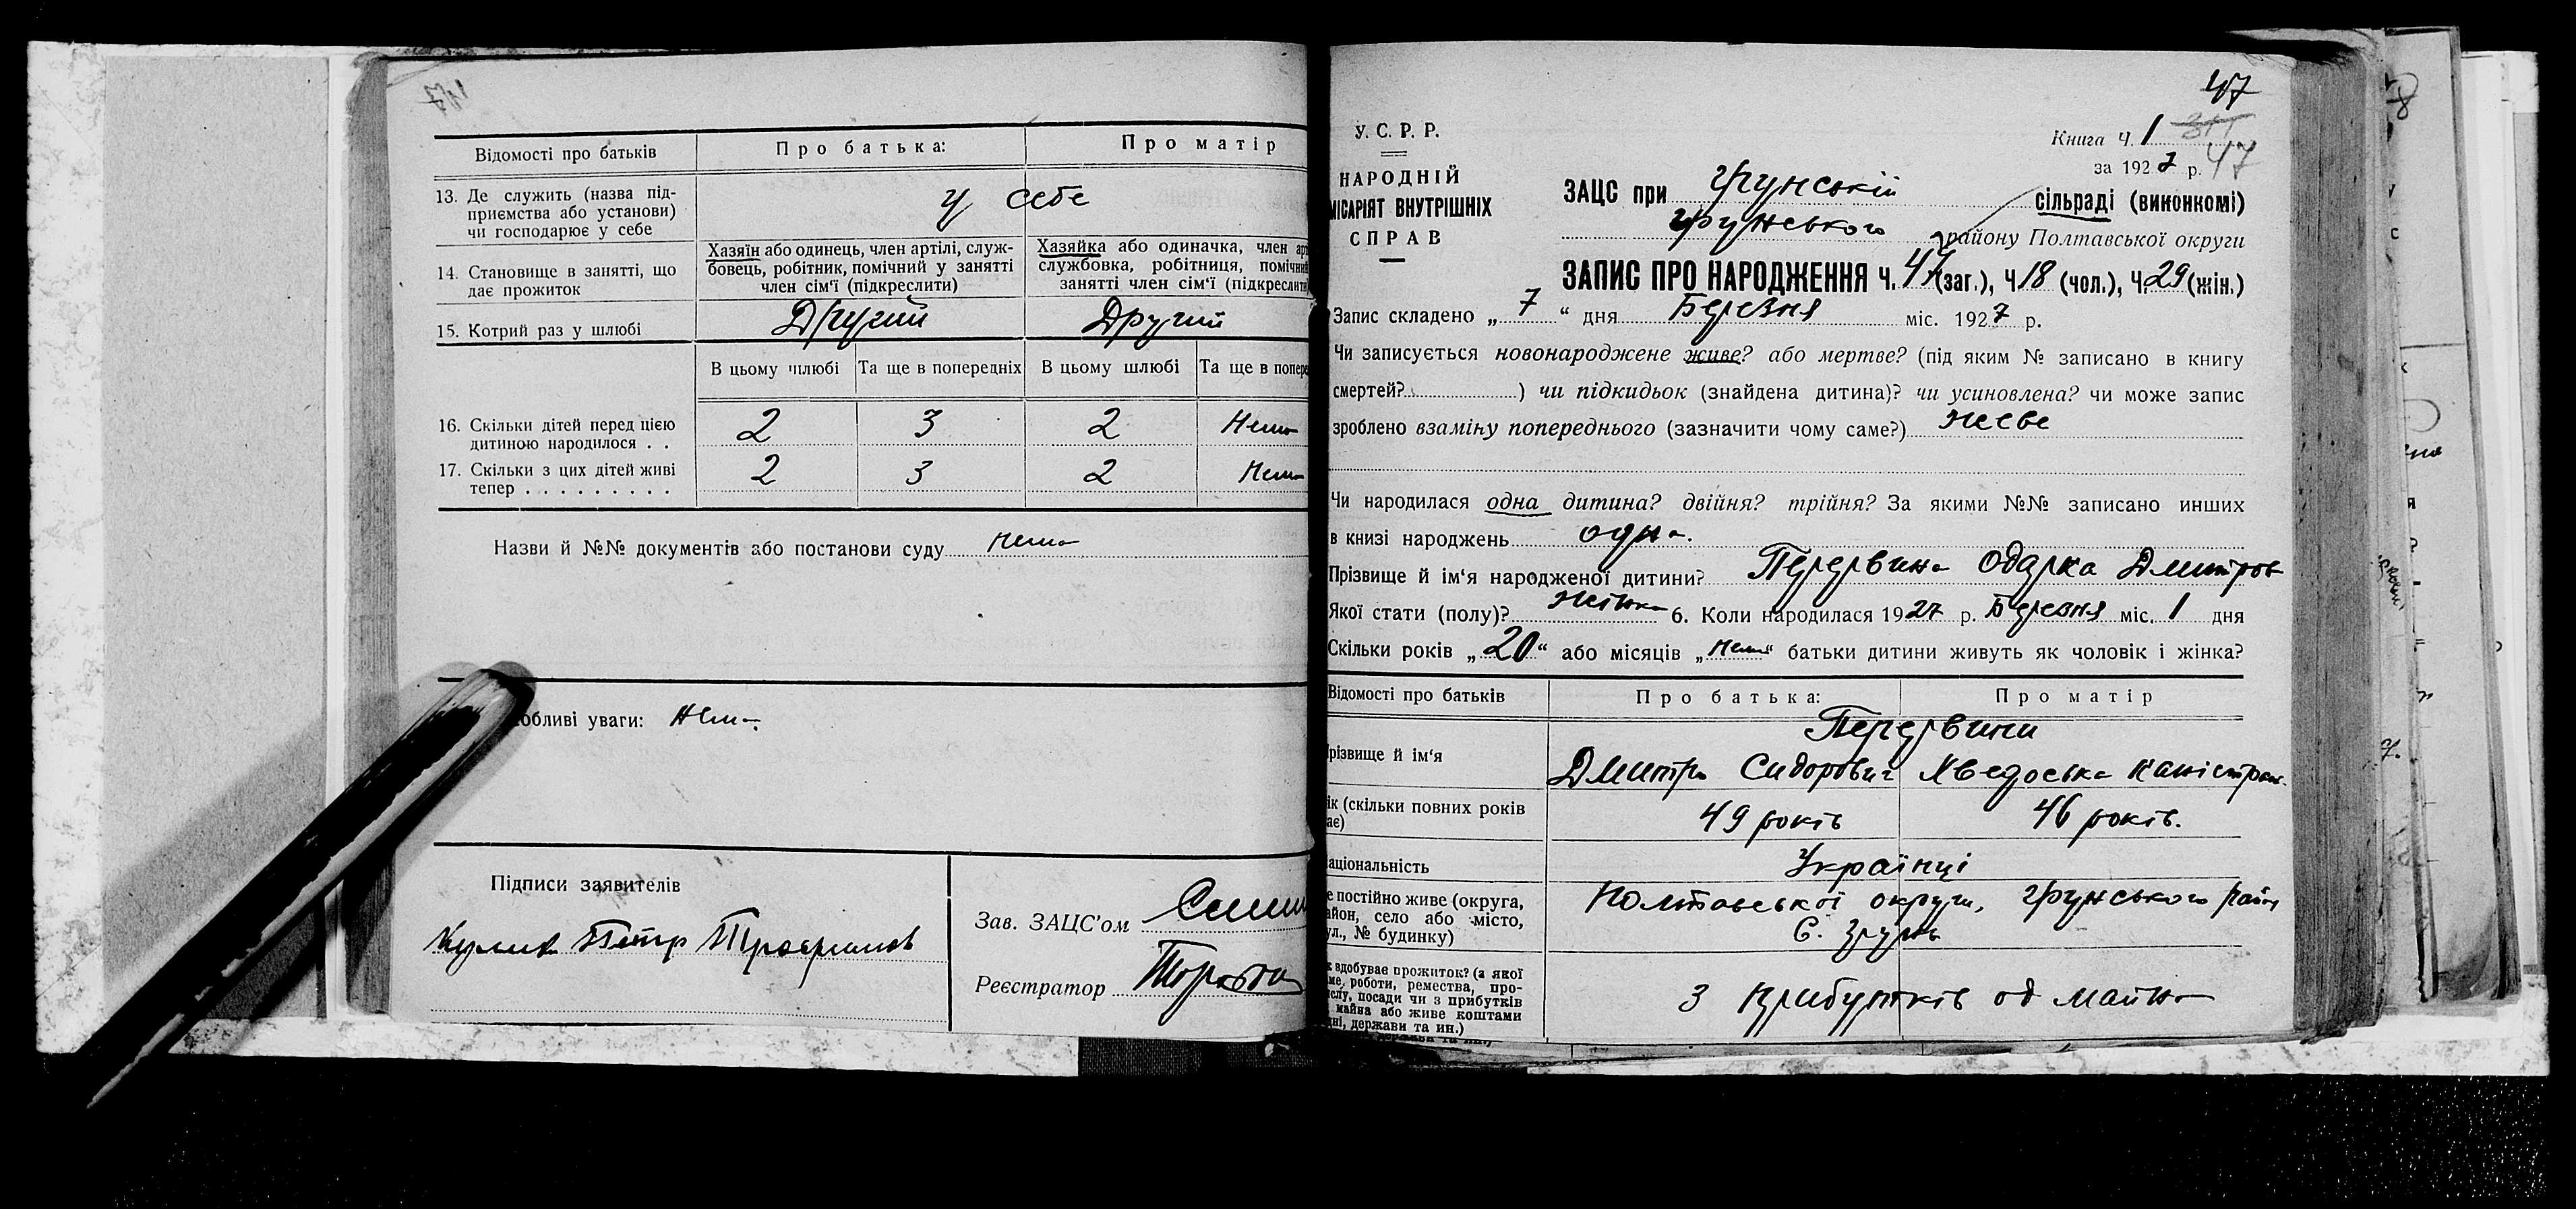 47
Відомості про батьків
Про батька:
Про матір
13. Де служить (назва під-
приємства або установи)
чи господарює у себе
у себе
14. Становище в занятті, що
дає прожиток
Хазяїн або одинець, член артілі, служ-
бовець, робітник, помічний у занятті
член сім'ї (підкреслити)
Хазяйка або одиначка, член арт
службовка, робітниця, помічний
занятті член сім'ї (підкреслити)
15. Котрий раз у шлюбі
Другий
Другий
В цьому шлюбі
Та ще в попередніх
В цьому шлюбі
Та ще в попере
16. Скільки дітей перед цією
дитиною народилося . .
2
3
2
Нема
17. Скільки з цих дітей живі
тепер . . . . . . . . .
2
3
2
Нема
Назви й №№ документів або постанови суду нема
обливі уваги: Нема.
Підписи заявителів
Зав. ЗАЦС'ом
Петр
Реєстратор
47
У. С. Р. Р.
Книга Ч. 1
за 1927 р. 47
НАРОДНІЙ
МІСАРІЯТ ВНУТРІШНІХ
СПРАВ
ЗАЦС при Грунській сільраді (виконкомі)
Грунського району Полтавської округи
ЗАПИС ПРО НАРОДЖЕННЯ Ч. 47 (заг.), Ч 18 (чол.), Ч. 29 (жін.)
Запис складено „ 7 “ дня Березня міс. 1927 р.
Чи записується новонароджене живе? або мертве? (під яким № записано в книгу
смертей? ) чи підкидьок (знайдена дитина)? чи усиновлена? чи може запис
зроблено взаміну попереднього (зазначити чому саме?) живе
Чи народилася одна дитина? двійня? трійня? За якими №№ записано инших
в книзі народжень одна.
Прізвище й ім'я народженої дитини? Перервина Одарка Дмитров
Якої стати (полу)? жінка 6. Коли народилася 1927 р. Березня міс. 1 дня
Скільки років „ 20 “ або місяців „нема“ батьки дитини живуть як чоловік і жінка?
Відомості про батьків
Про батька:
Про матір
Перервини
різвище й ім'я
Дмитро Сидорович
Хведоська
ік (скільки повних років
ає)
49 років
46 років.
аціональність
Українці
е постійно живе (округа,
айон, село або місто,
ул., № будинку)
Полтавської округи, Грунського район
с. Грунь
к здобуває прожиток? (з якої
ме, роботи, ремества, про-
ислу, посади чи з прибутків
майна або живе коштами
ні, держави та ин.)
З прибутків од майна